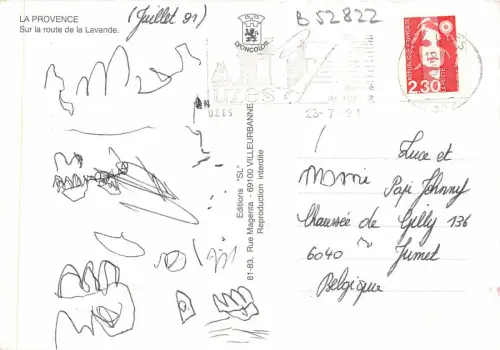 LA PROVENCE
Sur la route de la Lavande.
(Juillet 91)
LYONCOLOR
B 52822
REPUBLIQUE FRANÇAISE
LA POSTE
2,30
UZES
UZES
23-7 91
Editions "SL"
81-83, Rue Magenta - 69100 VILLEURBANNE
Reproduction interdite
Luce et
Mamie Papi Johnny
Chaussée de Gilly 136
6040 Jumet
Belgique